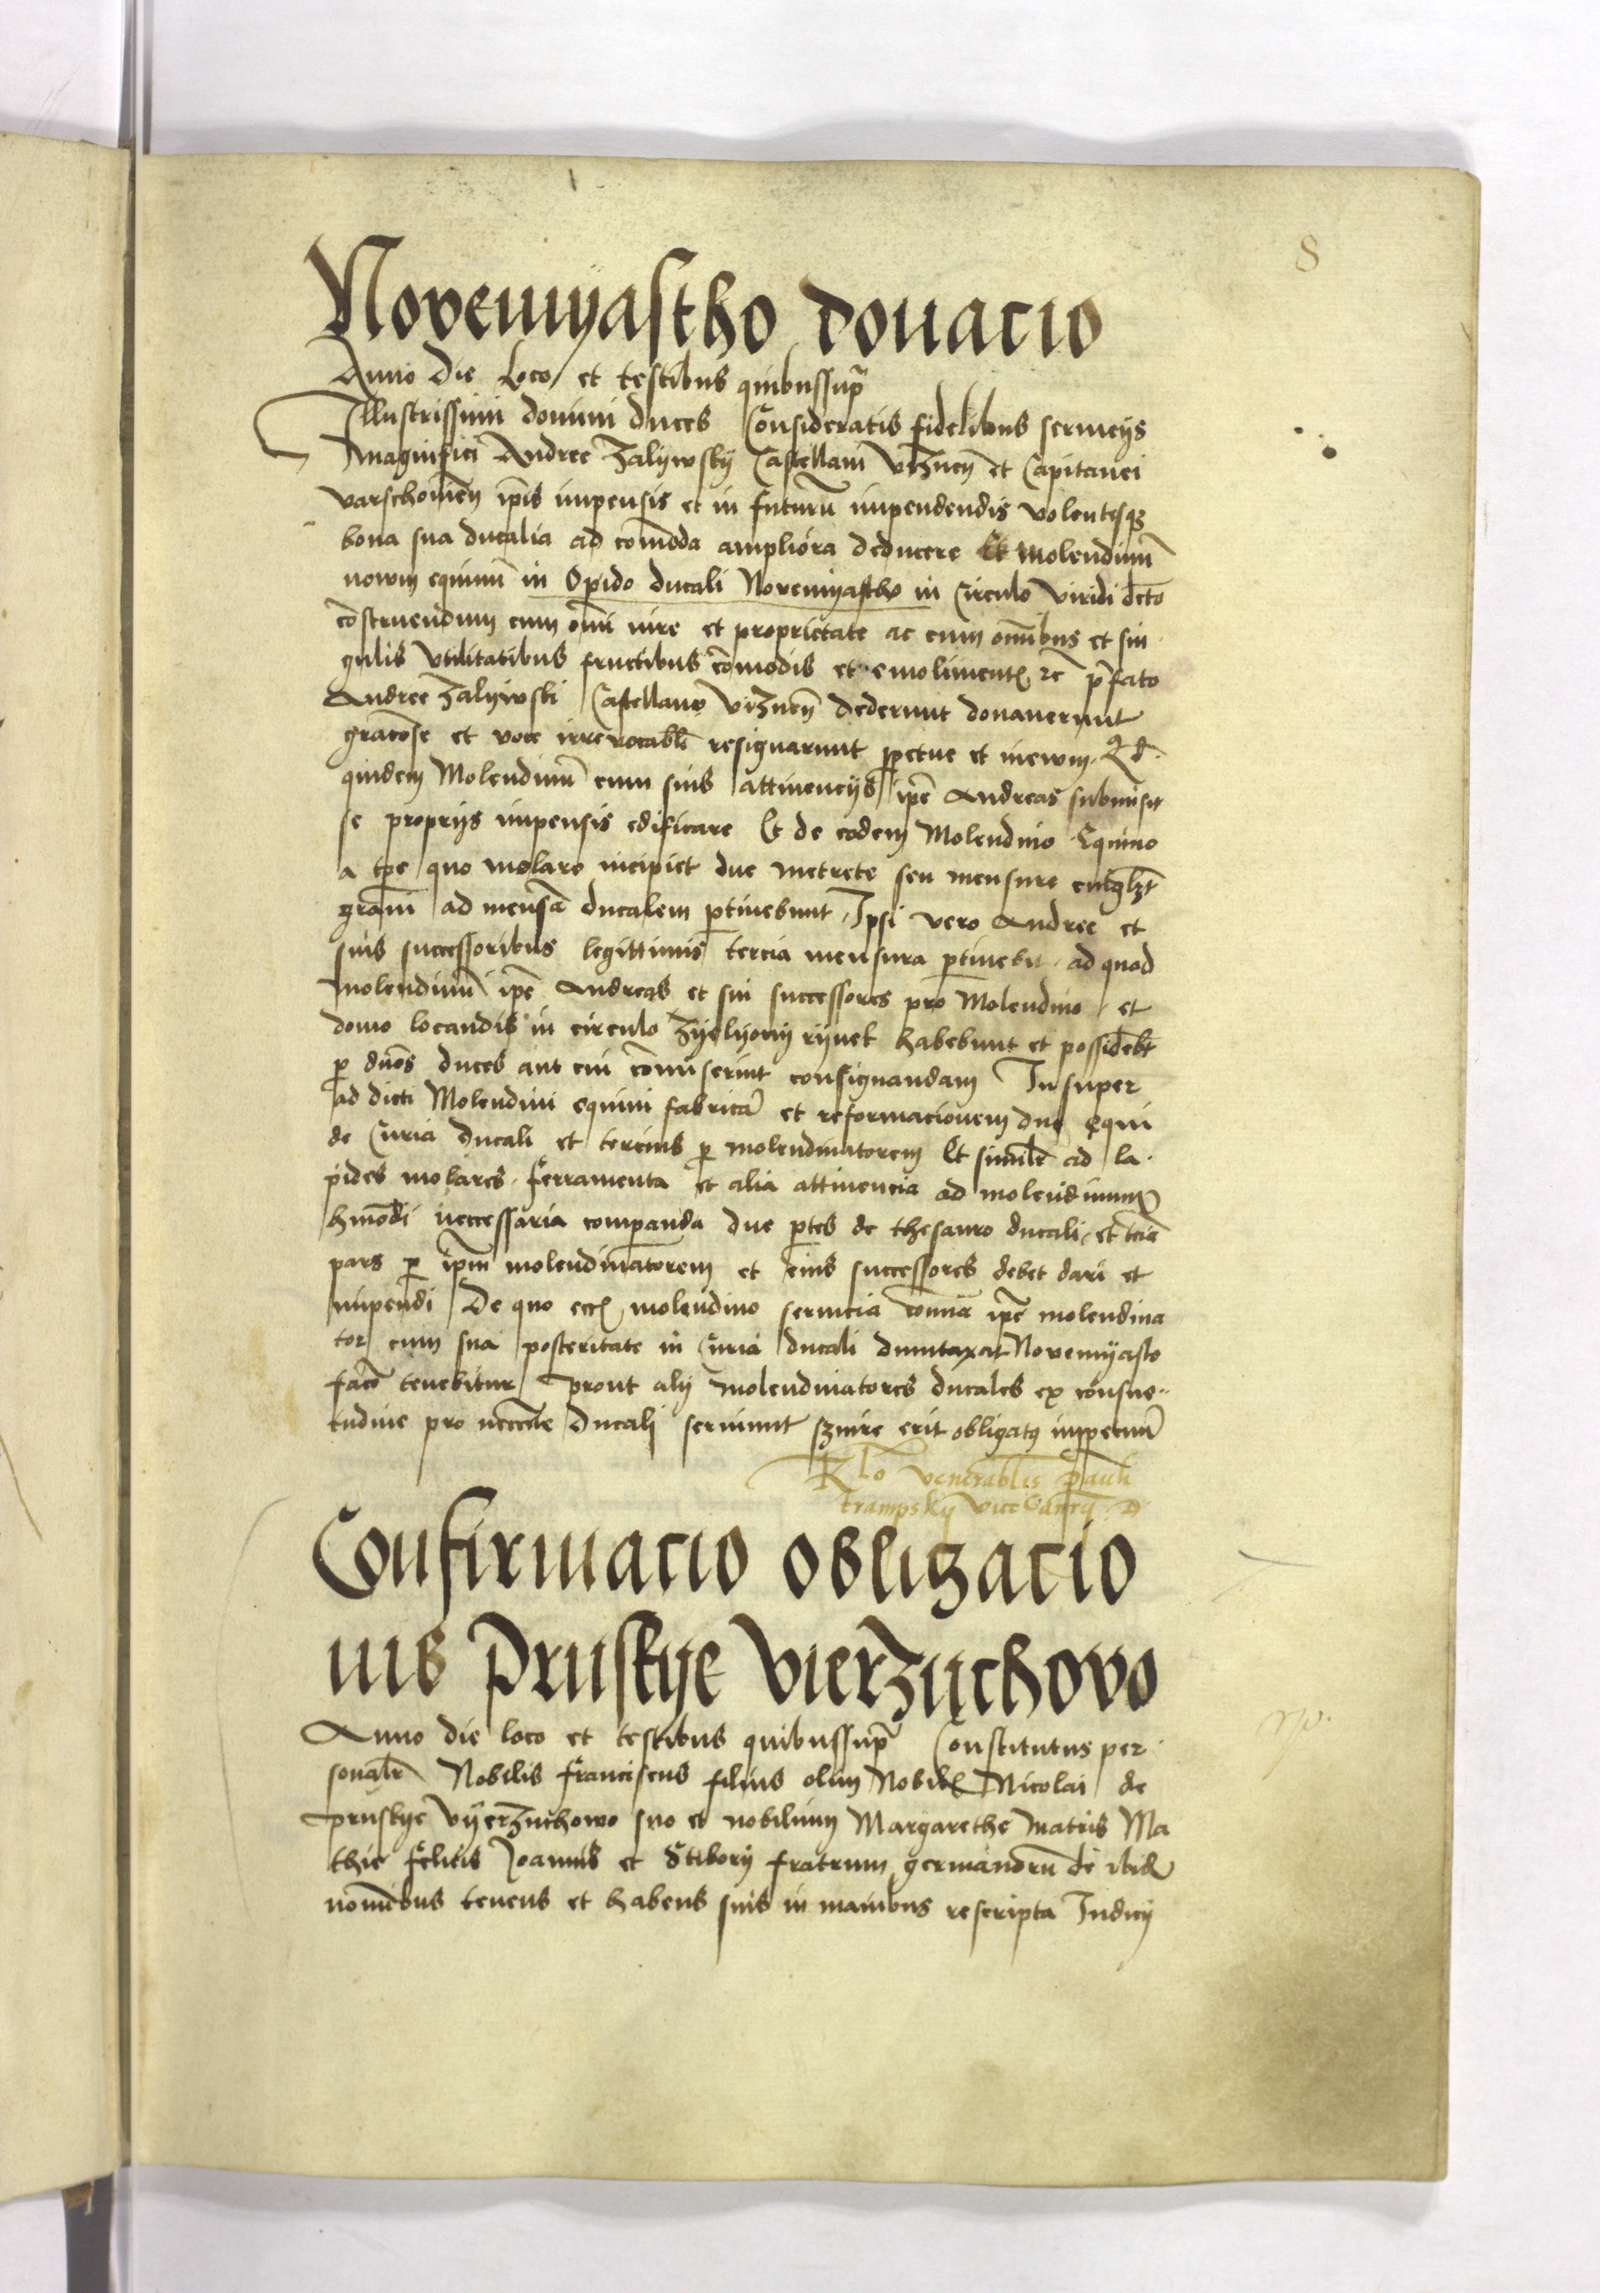 8
Novemyastho donacio
Anno die Loco et testibus quibussupra
Illustrissimi domini duces Consideratis fidelibus serviciis
Magnifici Andree Zalywsky Castellani vizneñ et Capitanei
varschovieñ ip̃is impensis et in futurũ impendendis volentesq3
bona sua ducalia ad com̃oda ampliora deducere Et Molendinũ
nowm equinũ in Opido ducali Novemyastho in Circulo viridi dc̃to
cõstruendum cum om̃i iure et proprietate ac cum om̃ibus et sin
gulis Utilitatibus fructibus com̃odis et emolimentꝭ rc̃ p̃fato
Andree Zalywski Castellano vizneñ dederunt donaverunt
grac̃ose et voce irrevocabl̃r resignarunt ꝑpetue et inewm. Qd
quidem Molendinũ cum suis attinencys ip̃e Andreas submisit
se proprys impensis edificare Et de eodem Molendino Equino
a tp̃e quo molare incipiet due metrete seu mensure
grani ad mensã ducalem ꝑtinebunt. Ipsi vero Andree et
suis successoribus legittimis tercia mensura ꝑtinebit ad quod
Molendinũ ip̃e Andreas et sui successores pro Molendino et
domo locandis in circulo Zyelyony rynek habebunt et possideb̃t
ꝑ dños duces aut cui com̃iserint consignandam Insuper
ad dicti Molendini equini fabricã et reformacionem due equi
de Curia ducali et tercius ꝑ molendinatorem Et simil̃r ad la
pides molares ferramenta et alia attinencia ad molendinum
hmõdi neccessaria companda due ꝑtes de thesauro ducali et tcĩa
pars ꝑ ip̃m molendinatorem et eius successores debet dari et
impendi De quo molendino servicia ip̃e molendina
tor cum sua posteritate in Curia ducali dumtaxat Novemyasto
fac̃e tenebitur prout aly molendinatores ducales ex consue
tudine pro ducali serviunt erit obligatꝰ inꝑpetuũ
Rlo venerablis Pauli
trampsky vice
Confirmacio obligacio
nis Pruskye vierzuchovo
Anno die loco et testibus quibussupra Constitutus per
sonal̃r Nobilis franciscus filius olim Nobilꝭ Nicolai de
pruskye vyerzuchowo suo et nobilium Margarethe matris Ma
thie felicis Joannis et Stibory fratrum germanorũ de ibid̃
nomĩbus tenens et habens suis in manibus rescripta Iudicy